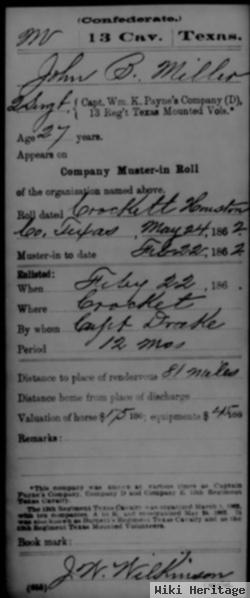 (Confederate.)
M 13 Cav. Texas.
John B. Miller
2 Sergt., Capt. Wm. K. Payne's Company (D),
13 Reg't Texas Mounted Vols.*
Age 27 years.
Appears on
Company Muster-in Roll
of the organization named above.
Roll dated Crockett Houston
Co. Texas May 24, 1862
Muster-in to date Feb 22, 1862
Enlisted:
When Feby 22, 186
Where Crocket
By whom Capt Drake
Period 12 mos
Distance to place of rendezvous 81 miles
Distance home from place of discharge
Valuation of horse $175 100; equipments $45 100
Remarks:
*This company was known at various times as Captain
Payne's Company, Company D and Company E, 13th Regiment
Texas Cavalry.
The 13th Regiment Texas Cavalry was organized March 1, 1862,
with ten companies, A to K, and reorganized May 24, 1862. It
was also known as Burnett's Regiment Texas Cavalry and as the
13th Regiment Texas Mounted Volunteers.
Book mark:
J. W. Wilkinson
Wiki Heritage